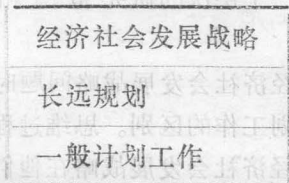 经济社会发展战略
长远规划
一般计划工作